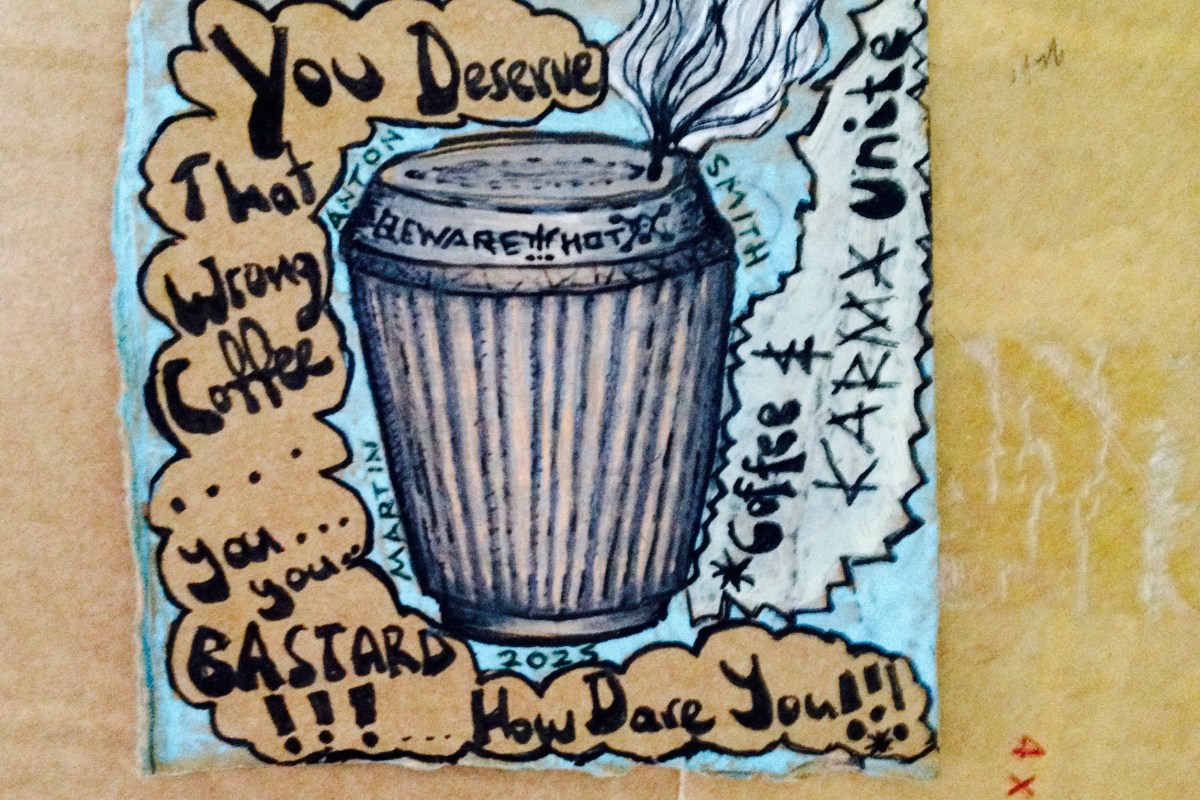 You Deserve
That
Wrong
Coffee
....
you...
you..
BASTARD
!!!.... How Dare You!!!
ANTON
SMITH
MARTIN
2025
BEWARE!!! HOT
*Coffee &
KARMA Unite
4 X